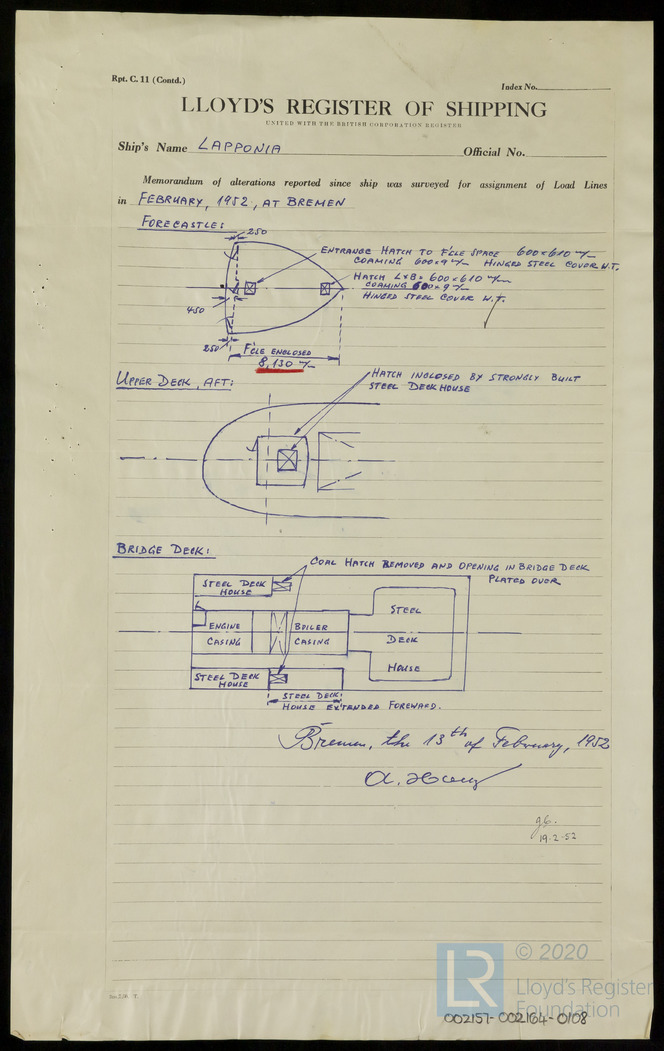 Rpt. C. 11 (Contd.)
Index No.
LLOYD'S REGISTER OF SHIPPING
UNITED WITH THE BRITISH CORPORATION REGISTER
Ship's Name LAPPONIA
Official No.
Memorandum of alterations reported since ship was surveyed for assignment of Load Lines
in FEBRUARY, 1952, AT BREMEN
FORECASTLE:
250
ENTRANCE HATCH TO F'CLE SPACE 600×610 m/m
COAMING 600×9 m/m HINGED STEEL COVER W.T.
HATCH L×B= 600×610 m/m
COAMING 600×9 m/m
HINGED STEEL COVER W.T.
450
250
F'CLE ENCLOSED
8,130 m/m
UPPER DECK, AFT:
HATCH INCLOSED BY STRONGLY BUILT
STEEL DECK HOUSE
BRIDGE DECK:
COAL HATCH REMOVED AND OPENING IN BRIDGE DECK
PLATED OVER
STEEL DECK
HOUSE
ENGINE
CASING
BOILER
CASING
STEEL
DECK
HOUSE
STEEL DECK
HOUSE
STEEL DECK
HOUSE EXTENDED FOREWARD.
Bremen, the 13th of February, 1952
19-2-52
© 2020
LR
Lloyd's Register
Foundation
002157-002164-0108